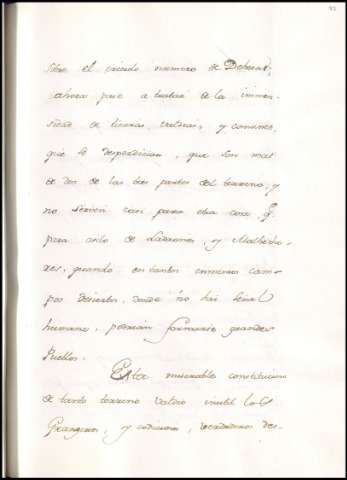 sobre el crecido numero de Dehesas,
ahora paso a tratar de la inmen-
sidad de tierras valdias, y comunes,
que se desperdician, que son mas
de dos de las tres partes del terreno, y
no sirven casi para otra cosa q.
para asilo de Ladrones, y Malhecho-
res, quando en tantos inmensos cam-
pos desiertos, donde no hai señal
humana, podrian formarse grandes
Pueblos.
Esta miserable constitucion
de tanto terreno valdio inutil los
Grangeros, y codiciosos, verdaderos des-